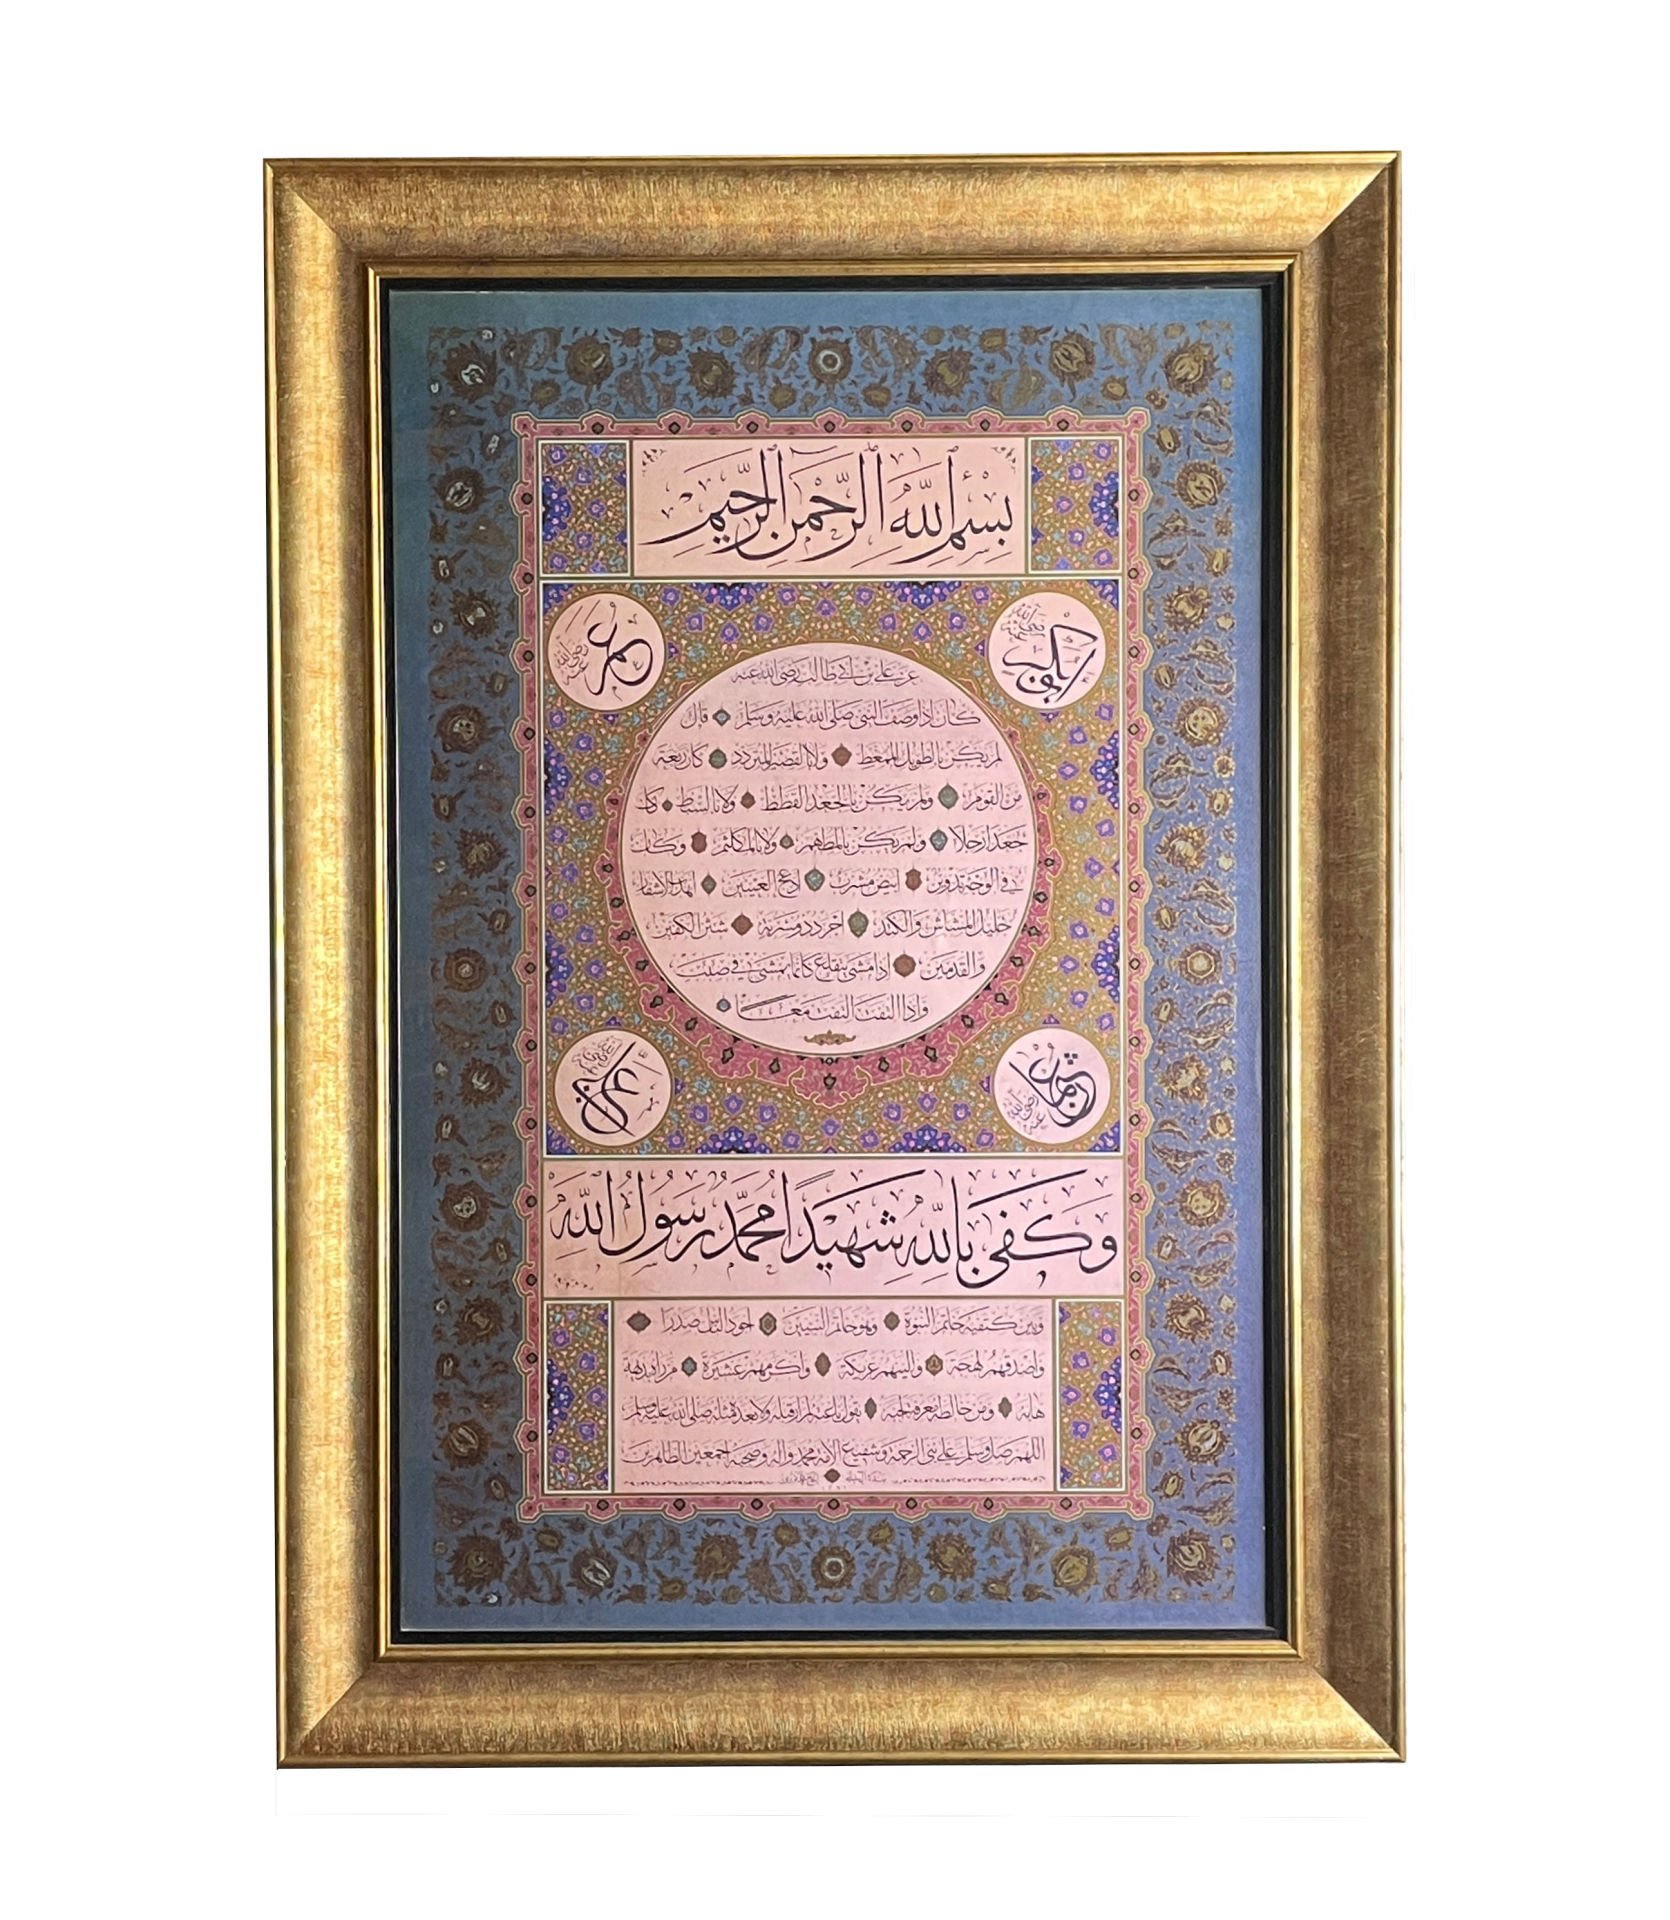 بِسْمِ ٱللَّهِ ٱلرَّحْمَنِ ٱلرَّحِيمِ
ابو بكر رضي الله عنه
عمر رضي الله عنه
عن علي بن ابي طالب رضي الله عنه
كان اذا وصف النبي صلى الله عليه وسلم قال
لم يكن بالطويل الممغط ولا بالقصير المتردد كان ربعة
من القوم ولم يكن بالجعد القطط ولا بالسبط كان
جعدا رجلا ولم يكن بالمطهم ولا بالمكلثم وكان
في الوجه تدوير ابيض مشرب ادعج العينين اهدب الاشفار
جليل المشاش والكتد اجرد ذو مسربة شثن الكفين
والقدمين اذا مشى يتقلع كانما يمشي في صبب
واذا التفت التفت معا
عثمان رضي الله عنه
علي رضي الله عنه
وَكَفَى بِاللَّهِ شَهِيدًا مُحَمَّدٌ رَسُولُ اللَّهِ
وبين كتفيه خاتم النبوة وهو خاتم النبيين اجود الناس صدرا
واصدقهم لهجة والينهم عريكة واكرمهم عشيرة من رآه بديهة
هابه ومن خالطه معرفة احبه يقول ناعته لم ار قبله ولا بعده مثله صلى الله عليه وسلم
اللهم صل وسلم على نبي الرحمة وشفيع الامة محمد وآله وصحبه اجمعين الطاهرين